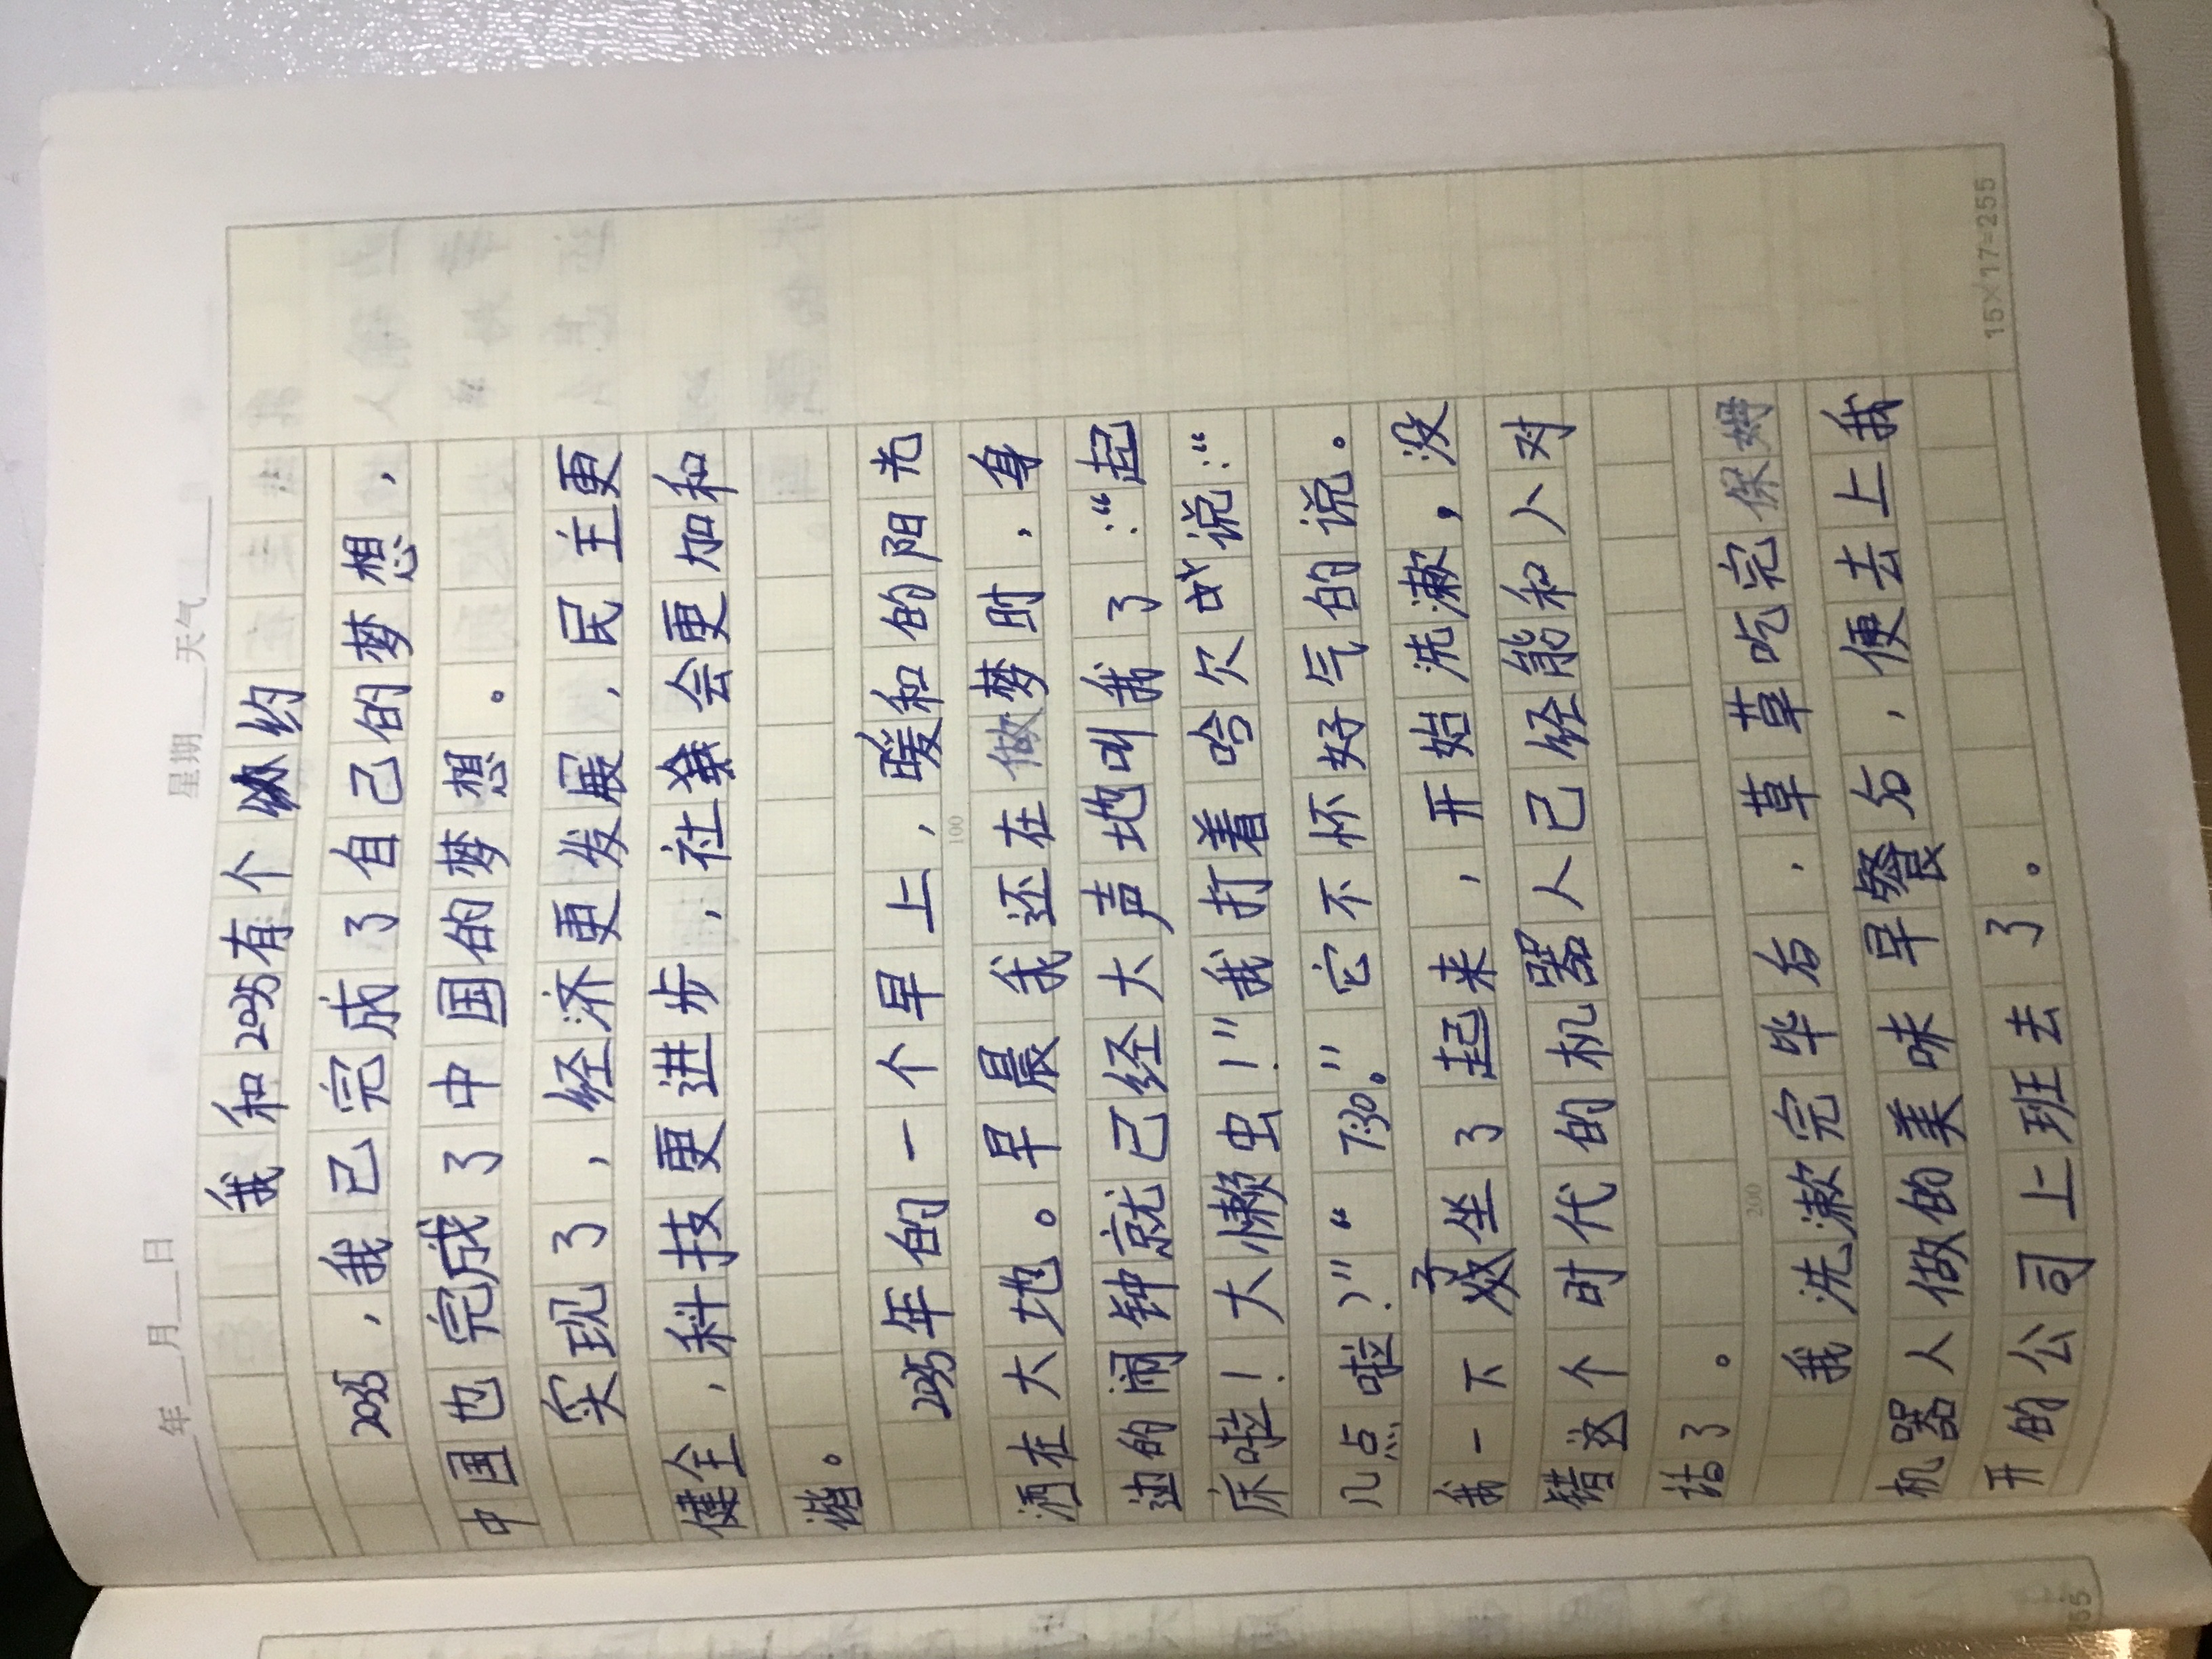 年 月 日 星期 天气
我和2035有个约
2035，我已完成了自己的梦想，
中国也完成了中国的梦想。
实现了，经济更发展，民主更
健全，科技更进步，社会更加和
谐。
2035年的一个早上，暖和的阳光
洒在大地。早晨我还在做梦时，身
边的闹钟就已经大声地叫我了：“起
床啦！大懒虫！”我打着哈欠说：“
几点啦？”“7:30。”它不怀好气的说。
我一下子坐了起来，开始洗漱，没
错这个时代的机器人已经能和人对
100
话了。
200
我洗漱完毕后，草草吃完保姆
机器人做的美味早餐后，便去上我
开的公司上班去了。
15×17=255
55